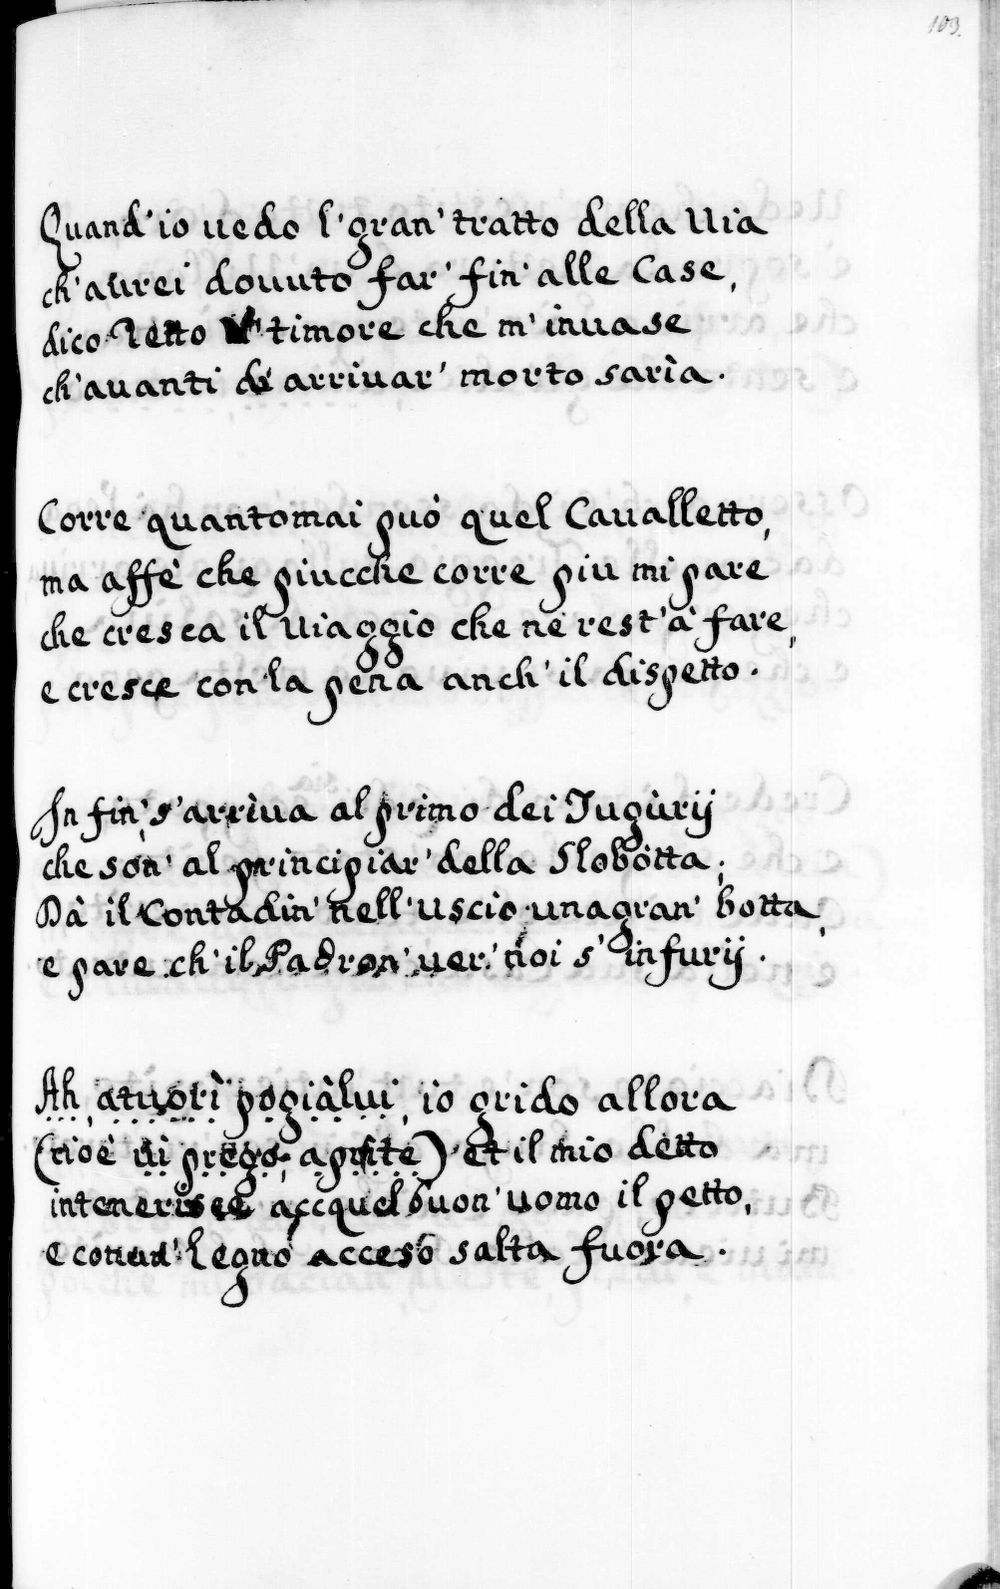 103.
Quand'io uedo l'gran' tratto della Uia
ch'aurei douuto far' fin' alle Case,
dico timore che m'inuase
ch'auanti di arriuar' morto sarìa.
Corre quantomai può quel Caualletto,
ma affè che piucche corre piu mi pare
che cresca il Uiaggio che ne rest'à fare,
e cresce con la pena anch'il dispetto.
In fin, s'arrìua al primo dei Tugùrij
che son' al principiar' della Slobotta;
Dà il Contadin' nell'uscio una gran' botta,
e pare ch'il Padron' uer' noi s'infurij.
Ah, atuorì pogiàlui, io grido allora
(cioè ui prego, aprite) et il mio detto
intenerisce accquel buon'uomo il petto,
e conun' legno acceso salta fuora.